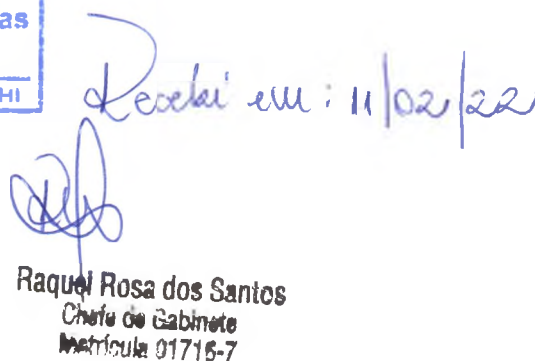 as
HI
Recebi em: 11/02/22
Raquel Rosa dos Santos
Chefe de Gabinete
Matrícula 01716-7